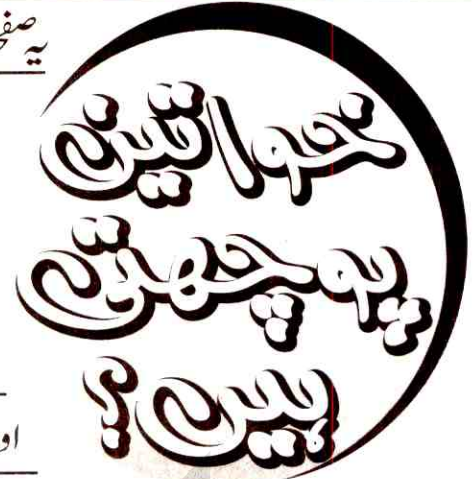 یہ صفح
خواتین
پوچھتی
ہیں؟
او